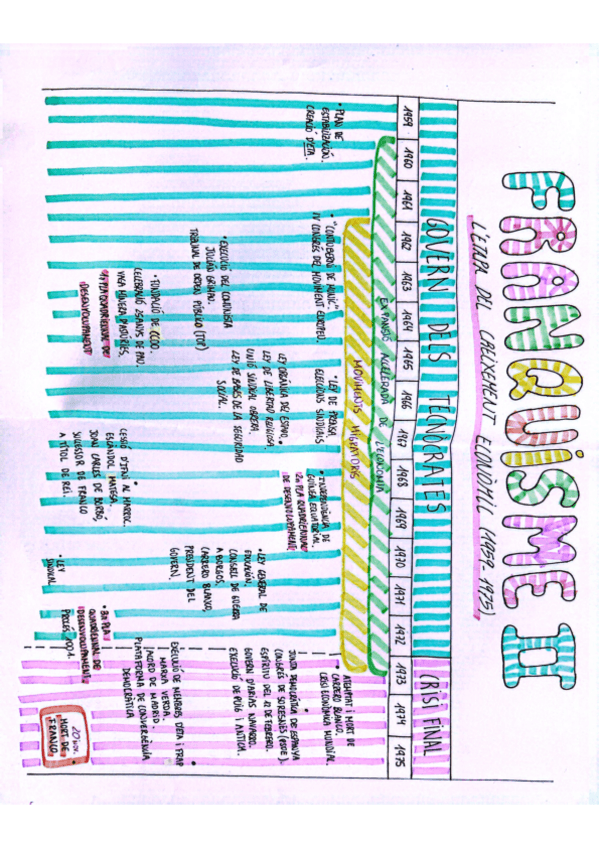 FRANQUISME II
L'ETAPA DEL CREIXEMENT ECONÒMIC (1959-1975)
GOVERN DELS TECNÒCRATES
CRISI FINAL
1959 1960 1961 1962 1963 1964 1965 1966 1967 1968 1969 1970 1971 1972 1973 1974 1975
EXPANSIÓ ACCELERADA DE L'ECONOMIA
MOVIMENTS MIGRATORIS
• PLAN DE
ESTABILIZACIÓN.
CREACIÓ D'ETA.
• "CONTUBERNI DE MÚNIC"
IV CONGRÉS DEL MOVIMENT EUROPEU.
• EXECUCIÓ DEL COMUNISTA
JULIÁN GRIMAU.
TRIBUNAL DE ORDEN PÚBLICO (TOP)
• FUNDACIÓ DE CCOO
CELEBRACIÓ 25 ANYS DE PAU.
VAGA MINERA D'ASTÚRIES.
1r PLA QUADRIENNAL DE
DESENVOLUPAMENT
• LEY DE PRENSA
ELECCIONS SINDICALS
LEY ORGÁNICA DEL ESTADO •
LEY DE LIBERTAD RELIGIOSA.
UNIÓ SINDICAL OBRERA.
LEY DE BASES DE LA SEGURIDAD
SOCIAL.
• INDEPENDÈNCIA DE
GUINEA EQUATORIAL.
2n PLA QUADRIENNAL
DE DESENVOLUPAMENT
CESSIÓ D'IFNI AL MARROC.
ESCÀNDOL MATESA.
JOAN CARLES DE BORBÓ,
SUCCESSOR DE FRANCO
A TÍTOL DE REI.
• LEY GENERAL DE
EDUCACIÓN.
CONSELL DE GUERRA
A BURGOS.
CARRERO BLANCO,
PRESIDENT DEL
GOVERN.
• LEY
SINDICAL
• 3R PLA
QUADRIENNAL DE
DESENVOLUPAMENT
PROCÉS 1001.
ATEMPTAT I MORT DE
CARRERO BLANCO.
CRISI ECONÒMICA MUNDIAL.
JUNTA DEMOCRÀTICA DE ESPANYA
CONGRÉS DE SURESNES (PSOE).
ESPÍRITU DEL 12 DE FEBRERO.
GOVERN D'ARIAS NAVARRO.
EXECUCIÓ DE PUIG I ANTICH.
EXECUCIÓ DE MEMBRES D'ETA I FRAP
MARXA VERDA.
ACORD DE MADRID.
PLATAFORMA DE CONVERGÈNCIA
DEMOCRÀTICA
20 NOV.
MORT DE
FRANCO